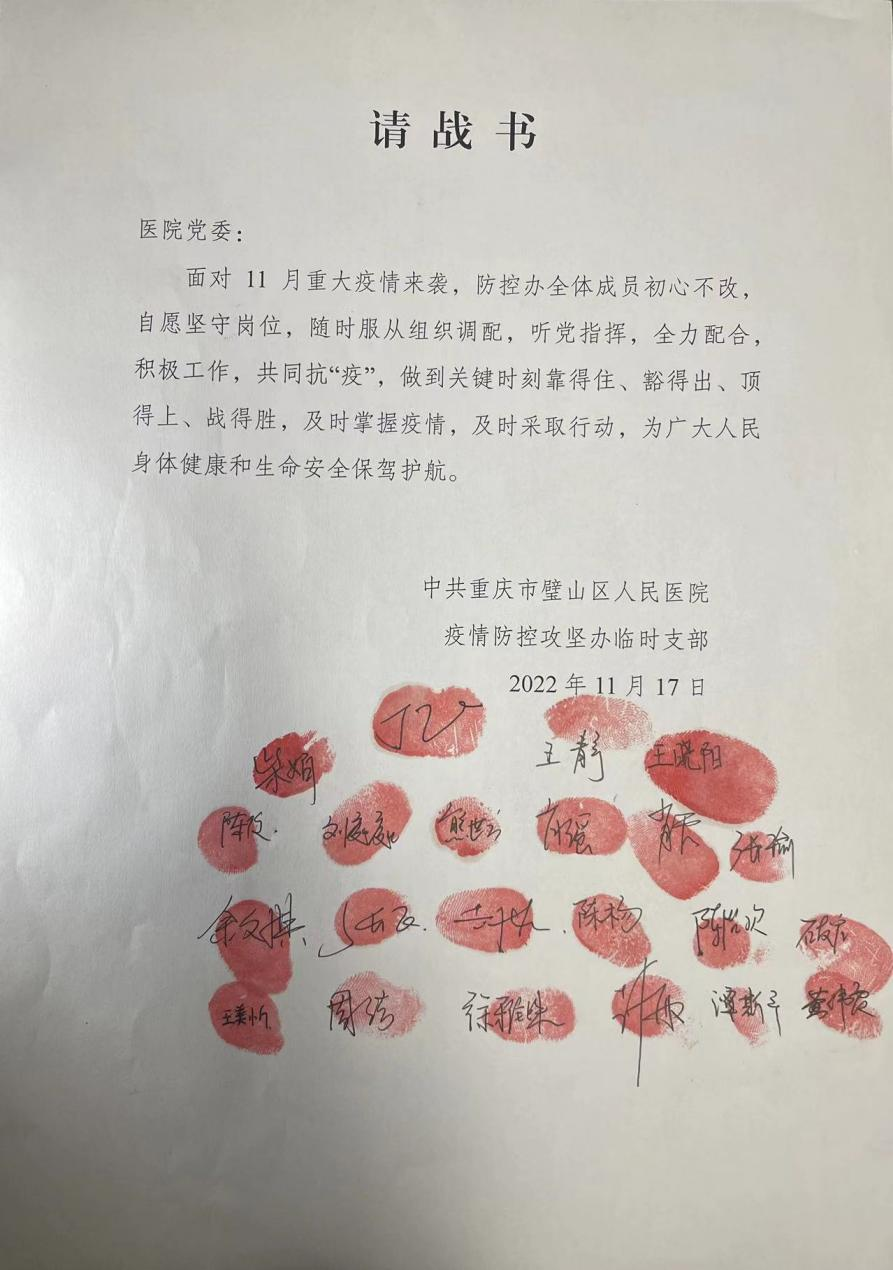 请战书
医院党委：
面对 11 月重大疫情来袭，防控办全体成员初心不改，
自愿坚守岗位，随时服从组织调配，听党指挥，全力配合，
积极工作，共同抗“疫”，做到关键时刻靠得住、豁得出、顶
得上、战得胜，及时掌握疫情，及时采取行动，为广大人民
身体健康和生命安全保驾护航。
中共重庆市璧山区人民医院
疫情防控攻坚办临时支部
2022 年 11 月 17 日
朱娟 王静 王晓阳
余文棋 陈杨
王美忻 周绮 徐雅铢 谭斯予